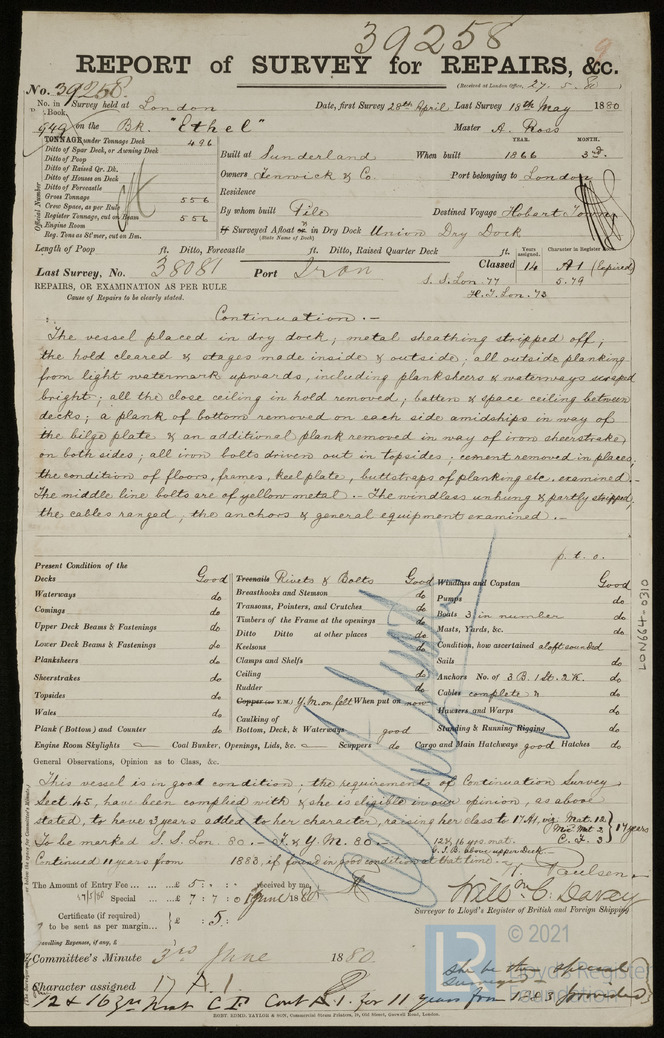 39258
9
REPORT of SURVEY for REPAIRS, &c.
(Received at London Office, 27.5.80)
No. 39258.
No. in Survey held at London Date, first Survey 28th April Last Survey 18th May 1880
Book
949 on the Bk. "Ethel" Master A. Ross
TONNAGE under Tonnage Deck 496
Ditto of Spar Deck, or Awning Deck
Ditto of Poop
Ditto of Raised Qr. Dk.
Ditto of Houses on Deck
Ditto of Forecastle
Gross Tonnage 556
Crew Space, as per Rule
Register Tonnage, cut on Beam 556
Engine Room
Reg. Tons as St'mer, cut on Bm.
Official Number
YEAR. MONTH.
Built at Sunderland When built 1866 3rd.
Owners Fenwick & Co. Port belonging to London
Residence
By whom built Pile Destined Voyage Hobart Town
If Surveyed Afloat or in Dry Dock Union Dry Dock
(State Name of Dock)
Length of Poop ft. Ditto, Forecastle ft. Ditto, Raised Quarter Deck ft.
Years assigned. Character in Register
Last Survey, No. 38081 Port Iron Classed 14 A1 (Expired)
S. S. Lon. 77 5.79
H.T. Lon. 73
REPAIRS, OR EXAMINATION AS PER RULE
Cause of Repairs to be clearly stated.
Continuation.-
The vessel placed in dry dock; metal sheathing stripped off;
the hold cleared & stages made inside & outside; all outside planking
from light watermark upwards, including planksheers & waterways scraped
bright; all the close ceiling in hold removed; batten & space ceiling between
decks; a plank of bottom removed on each side amidships in way of
the bilge plate & an additional plank removed in way of iron sheerstrake
on both sides; all iron bolts driven out in topsides. cement removed in places,
the condition of floors, frames, keelplate, buttstraps of planking etc. examined.-
The middle line bolts are of yellow metal.- The windlass unhung & partly stripped,
the cables ranged, the anchors & general equipment examined.-
p.t.o.
Present Condition of the
Decks Good
Waterways do
Comings do
Upper Deck Beams & Fastenings do
Lower Deck Beams & Fastenings do
Planksheers do
Sheerstrakes do
Topsides do
Wales do
Plank (Bottom) and Counter do
Treenails Rivets & Bolts Good
Breasthooks and Stemson do
Transoms, Pointers, and Crutches do
Timbers of the Frame at the openings do
Ditto Ditto at other places do
Keelsons do
Clamps and Shelfs do
Ceiling do
Rudder do
Copper (or Y.M.) Y.M. on felt When put on now
Caulking of
Bottom, Deck, & Waterways good
Windlass and Capstan Good
Pumps do
Boats 3 in number do
Masts, Yards, &c. do
Condition, how ascertained aloft sounded
Sails do
Anchors No. of 3 B. 1 St. 2 K. do
Cables complete & do
Hawsers and Warps do
Standing & Running Rigging do
Engine Room Skylights Coal Bunker, Openings, Lids, &c. Scuppers do Cargo and Main Hatchways good Hatches do
General Observations, Opinion as to Class, &c.
This vessel is in good condition; the requirements of Continuation Survey
Sect 45, have been complied with & she is eligible in our opinion, as above
stated, to have 3 years added to her character, raising her class to 17 A1, viz. Mat. 12
C. F. 3
17 years
To be marked S. S. Lon. 80.- F. & Y. M. 80.- 12 & 16 yrs. mat.
C.I.B. above upper Deck
Continued 11 years from 1883, if found in good condition at that time.-
The Amount of Entry Fee £ 5 : : received by me,
17/5/80 Special £ 7 : 7 : 0 June 1880
Certificate (if required) £ 5.
to be sent as per margin
Travelling Expenses, if any, £
Paulsen
Will C. Davey
Surveyor to Lloyd's Register of British and Foreign Shipping
Committee's Minute 3rd June 1880.
Character assigned 17 A.1.
she be special
surveyed
12 & 16 yrs Mat C I B Cont A.1. for 11 years from 1883 provided
ROBT. EDMD. TAYLOR & SON, Commercial Steam Printers, 19, Old Street, Goswell Road, London.
LON994-0310
LR
© 2021
Lloyd's Register
Foundation